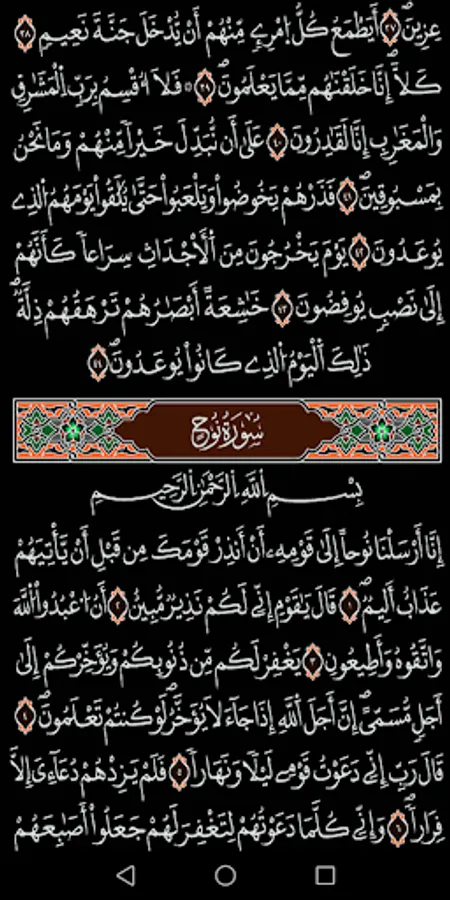 عِزِينَۖ ٣٧ أَيَطْمَعُ كُلُّ اُمْرِےٕ مِّنْهُمُۥٓ أَنْ يُّدْخَلَ جَنَّةَ نَعِيمٖ ٣٨
كَلَّآۖ إِنَّا خَلَقْنَٰهُم مِّمَّا يَعْلَمُونَۖ ٣٩ ۞ فَلَآ أُقْسِمُ بِرَبِّ اِ۬لْمَشَٰرِقِ
وَالْمَغَٰرِبِ إِنَّا لَقَٰدِرُونَ ٤٠ عَلَىٰٓ أَن نُّبَدِّلَ خَيْراٗ مِّنْهُمْ وَمَا نَحْنُ
بِمَسْبُوقِينَۖ ٤١ فَذَرْهُمْ يَخُوضُواْ وَيَلْعَبُواْ حَتَّىٰ يُلَٰقُواْ يَوْمَهُمُ اُ۬لذِے
يُوعَدُونَ ٤٢ يَوْمَ يَخْرُجُونَ مِنَ اَ۬لْأَجْدَاثِ سِرَاعاٗ كَأَنَّهُمُۥٓ
إِلَىٰ نَصْبٖ يُوفِضُونَ ٤٣ خَٰشِعَةً أَبْصَٰرُهُمْ تَرْهَقُهُمْ ذِلَّةٞۖ
ذَٰلِكَ اَ۬لْيَوْمُ اُ۬لذِے كَانُواْ يُوعَدُونَۖ ٤٤
سُورَةُ نُوحٍ
بِسْمِ اِ۬للَّهِ اِ۬لرَّحْمَٰنِ اِ۬لرَّحِيمِ
إِنَّآ أَرْسَلْنَا نُوحاً إِلَىٰ قَوْمِهِۦٓ أَنْ أَنذِرْ قَوْمَكَ مِن قَبْلِ أَنْ يَّأْتِيَهُمْ
عَذَابٌ أَلِيمٞۖ ١ قَالَ يَٰقَوْمِ إِنِّے لَكُمْ نَذِيرٞ مُّبِينٌ ٢ أَنُ اُ۟عْبُدُواْ اُ۬للَّهَ
وَاتَّقُوهُ وَأَطِيعُونِ ٣ يَغْفِرْ لَكُم مِّن ذُنُوبِكُمْ وَيُؤَخِّرْكُمُۥٓ إِلَىٰٓ
أَجَلٖ مُّسَمّىًۖ اِنَّ أَجَلَ اَ۬للَّهِ إِذَا جَآءَ لَا يُؤَخَّرُۖ لَوْ كُنتُمْ تَعْلَمُونَۖ ٤
قَالَ رَبِّ إِنِّے دَعَوْتُ قَوْمِے لَيْلاٗ وَنَهَاراٗ ٥ فَلَمْ يَزِدْهُمْ دُعَآءِيَ إِلَّا
فِرَاراٗۖ ٦ وَإِنِّے كُلَّمَا دَعَوْتُهُمْ لِتَغْفِرَ لَهُمْ جَعَلُوٓاْ أَصَٰبِعَهُمْ